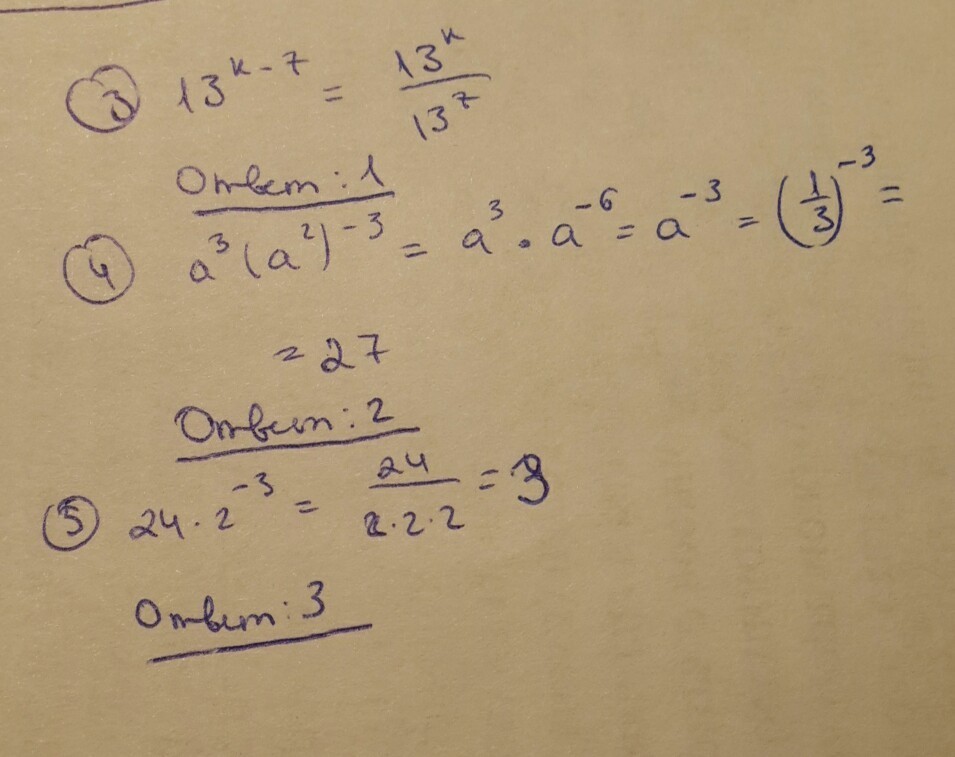 ③ 13^(к-7) = 13^к / 13^7
Ответ: 1
④ a³(a²)⁻³ = a³ · a⁻⁶ = a⁻³ = (1/3)⁻³ =
= 27
Ответ: 2
⑤ 24 · 2⁻³ = 24 / 2·2·2 = 3
Ответ: 3